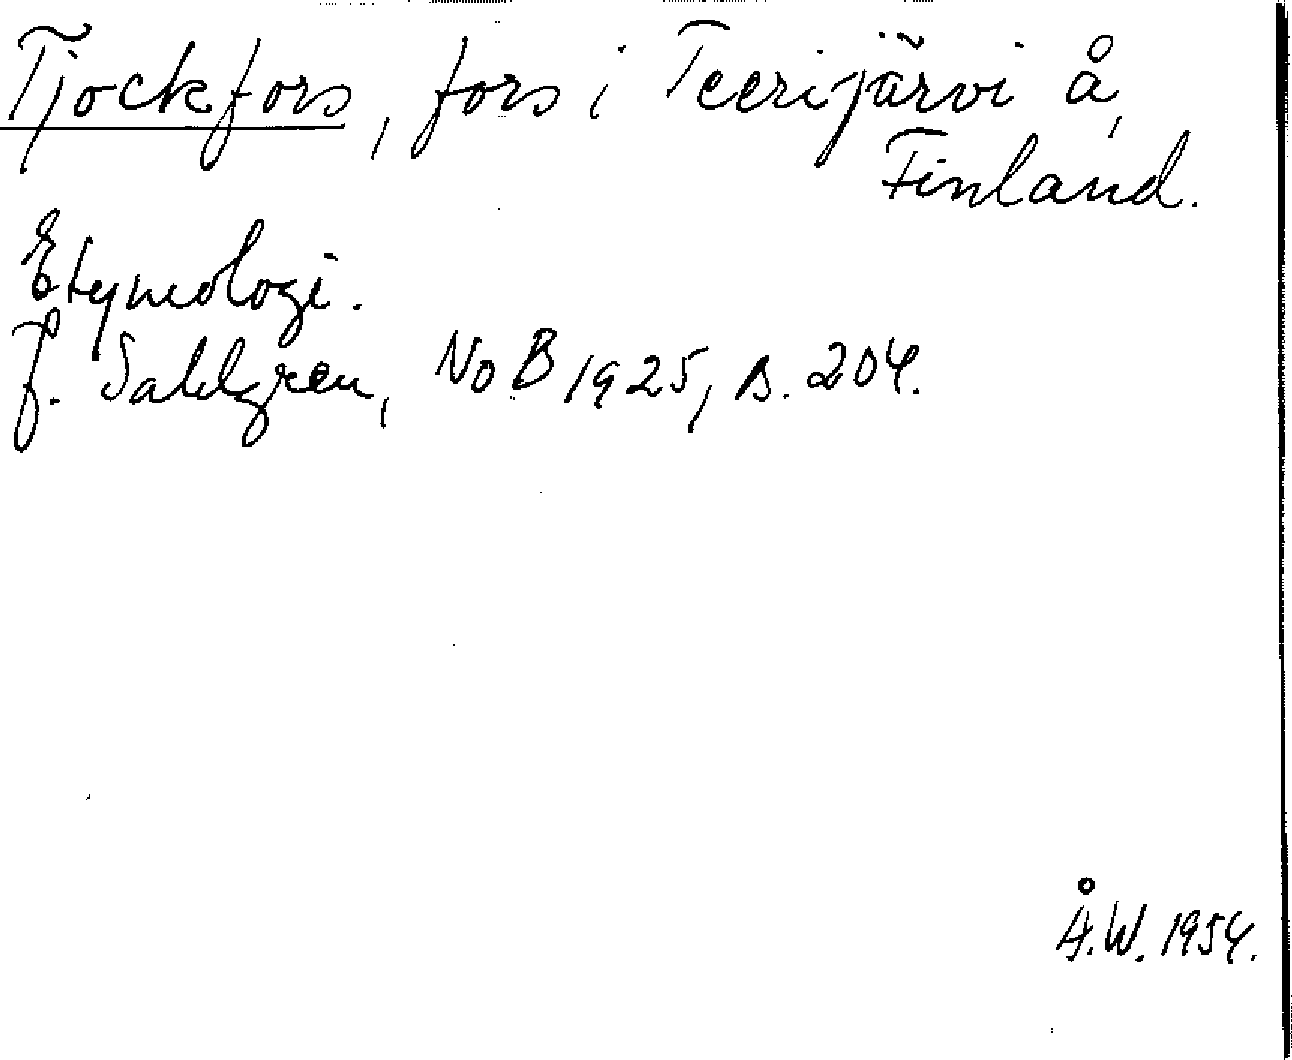 Tjockfors, fors i Teerijärvi å,
Finland.
Etymologi.
J. Sahlgren, NoB 1925, s. 204.
Å.W. 1954.